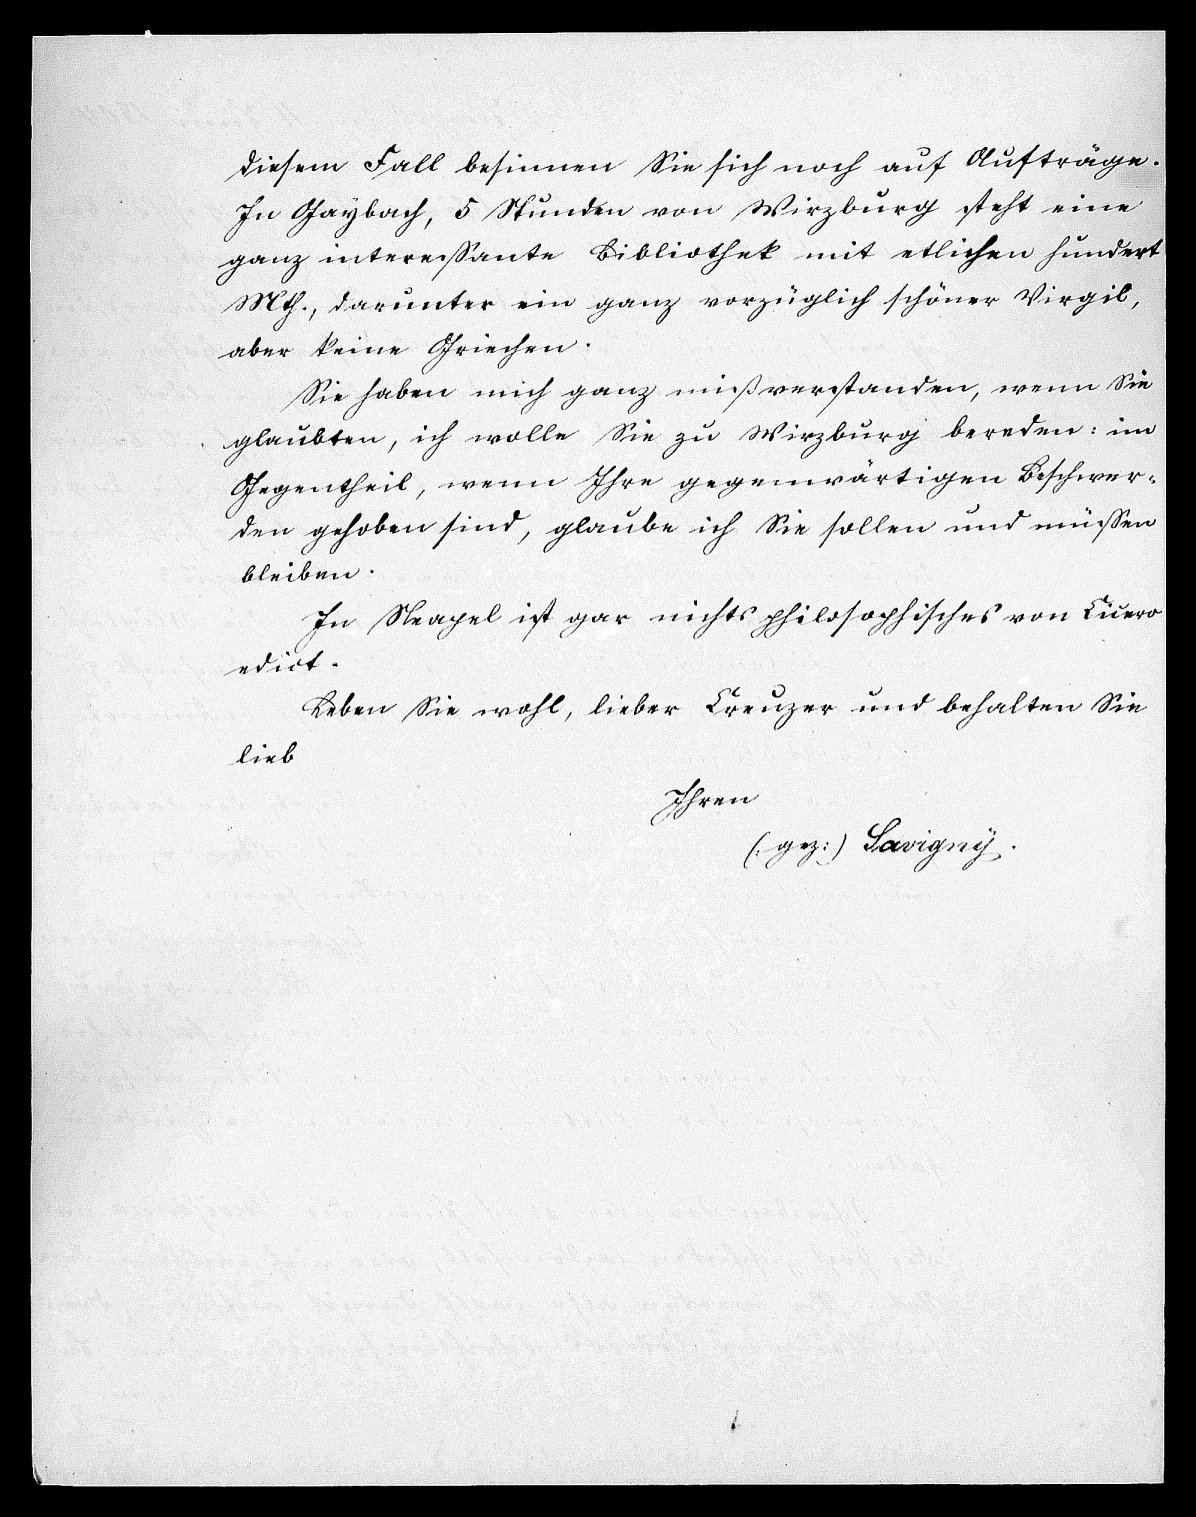 diesem Fall besinnen Sie sich noch auf Aufträge.
In Gaybach, 5 Stunden von Wirzburg steht eine
ganz interessante Bibliothek mit etlichen hundert
Mth., darunter ein ganz vorzüglich schöner Virgil,
aber keine Griechen.
Sie haben mich ganz mißverstanden, wenn Sie
glaubten, ich wolle Sie zu Wirzburg bereden: im
Gegentheil, wenn Ihre gegenwärtigen Beschwer-
den gehoben sind, glaube ich Sie sollen und müssen
bleiben.
In Neapel ist gar nichts philosophisches von Cicero
edirt.
Leben Sie wohl, lieber Creuzer und behalten Sie
lieb
Ihren
(: gez:) Savigny.